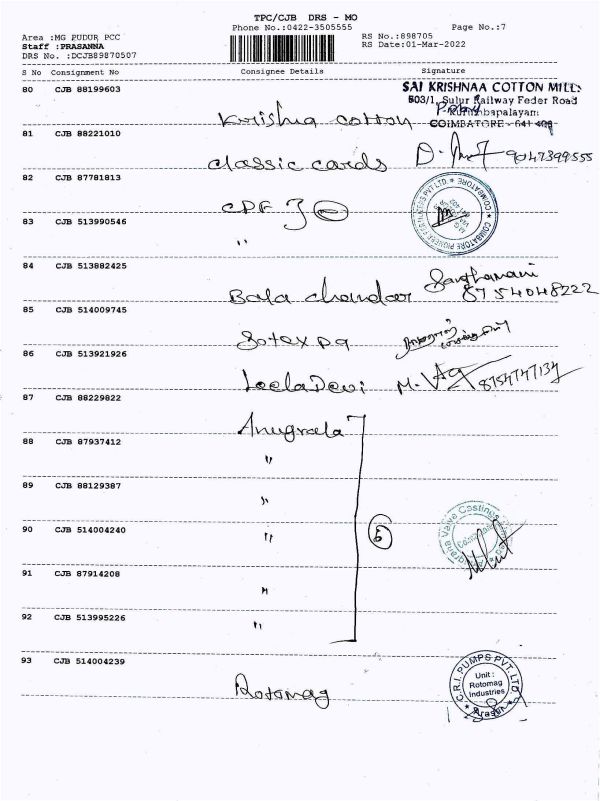 TPC/CJB DRS - MO
Phone No.:0422-3505555
Page No.:7
Area :MG PUDUR PCC
RS No.:898705
Staff :PRASANNA
RS Date:01-Mar-2022
DRS No. :DCJB89870507
S No Consignment No Consignee Details Signature
80 CJB 88199603
Krishna cotton
SAI KRISHNAA COTTON MILLS
503/1, Sulur Railway Feder Road
COIMBATORE - 641
81 CJB 88221010
classic cards
9047399555
82 CJB 87781813
CPF
COIMBATORE PIONEER PVT LTD. COIMBATORE
83 CJB 513990546
"
84 CJB 513882425
Bala chandar Santhamani
8754048222
85 CJB 514009745
Sotexpa
86 CJB 513921926
LeelaDevi 8754747134
87 CJB 88229822
Anugraha
88 CJB 87937412
"
89 CJB 88129387
"
90 CJB 514004240
"
5
Valve Castings
91 CJB 87914208
"
92 CJB 513995226
"
93 CJB 514004239
Rotomag
C.R.I. PUMPS PVT. LTD.
Unit :
Rotomag
Industries
Arasur